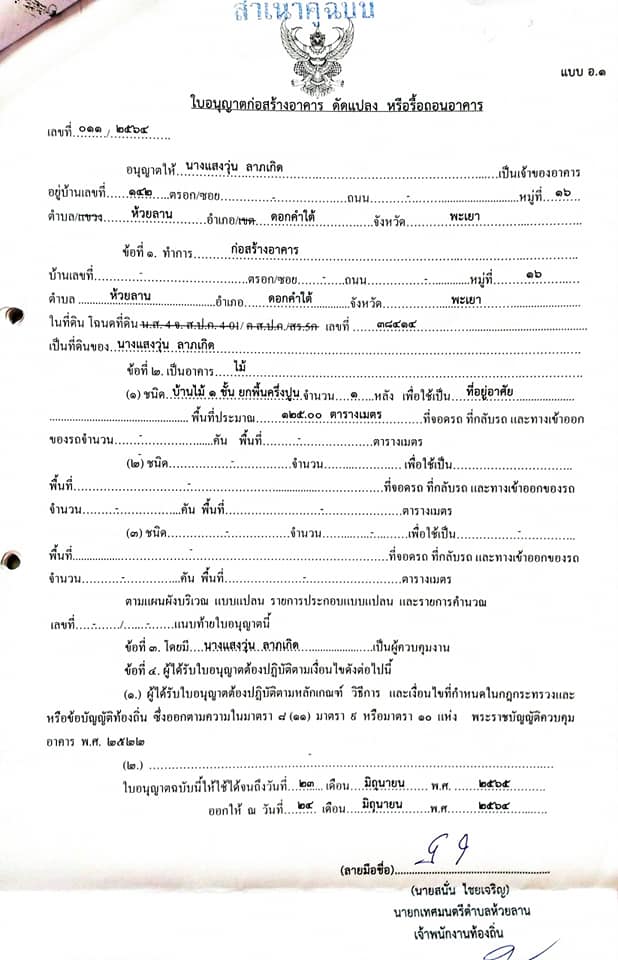 สำเนาคู่ฉบับ
แบบ อ.๑
ใบอนุญาตก่อสร้างอาคาร ดัดแปลง หรือรื้อถอนอาคาร
เลขที่ ๐๑๑ / ๒๕๖๔
อนุญาตให้ นางแสงวุ่น ลาภเกิด เป็นเจ้าของอาคาร
อยู่บ้านเลขที่ ๑๔๒ ตรอก/ซอย - ถนน - หมู่ที่ ๑๖
ตำบล/แขวง ห้วยลาน อำเภอ/เขต ดอกคำใต้ จังหวัด พะเยา
ข้อที่ ๑. ทำการ ก่อสร้างอาคาร
บ้านเลขที่ - ตรอก/ซอย - ถนน - หมู่ที่ ๑๖
ตำบล ห้วยลาน อำเภอ ดอกคำใต้ จังหวัด พะเยา
ในที่ดิน โฉนดที่ดิน น.ส. 4 จ. ส.ป.ก. 4-01/ ก ส.ป.ก./สร.5ก เลขที่ ๓๘๔๑๔
เป็นที่ดินของ นางแสงวุ่น ลาภเกิด
ข้อที่ ๒. เป็นอาคาร ไม้
(๑) ชนิด บ้านไม้ ๑ ชั้น ยกพื้นครึ่งปูน จำนวน ๑ หลัง เพื่อใช้เป็น ที่อยู่อาศัย
พื้นที่ประมาณ ๑๒๕.๐๐ ตารางเมตร ที่จอดรถ ที่กลับรถ และทางเข้าออก
ของรถจำนวน - คัน พื้นที่ - ตารางเมตร
(๒) ชนิด - จำนวน เพื่อใช้เป็น
พื้นที่ - ที่จอดรถ ที่กลับรถ และทางเข้าออกของรถ
จำนวน - คัน พื้นที่ - ตารางเมตร
(๓) ชนิด - จำนวน - เพื่อใช้เป็น -
พื้นที่ - ที่จอดรถ ที่กลับรถ และทางเข้าออกของรถ
จำนวน - คัน พื้นที่ - ตารางเมตร
ตามแผนผังบริเวณ แบบแปลน รายการประกอบแบบแปลน และรายการคำนวณ
เลขที่ - / - แนบท้ายใบอนุญาตนี้
ข้อที่ ๓. โดยมี นางแสงวุ่น ลาภเกิด เป็นผู้ควบคุมงาน
ข้อที่ ๔. ผู้ได้รับใบอนุญาตต้องปฏิบัติตามเงื่อนไขดังต่อไปนี้
(๑.) ผู้ได้รับใบอนุญาตต้องปฏิบัติตามหลักเกณฑ์ วิธีการ และเงื่อนไขที่กำหนดในกฎกระทรวงและ
หรือข้อบัญญัติท้องถิ่น ซึ่งออกตามความในมาตรา ๘ (๑๑) มาตรา ๙ หรือมาตรา ๑๐ แห่ง พระราชบัญญัติควบคุม
อาคาร พ.ศ. ๒๕๒๒
(๒.) -
ใบอนุญาตฉบับนี้ให้ใช้ได้จนถึงวันที่ ๒๓ เดือน มิถุนายน พ.ศ. ๒๕๖๕
ออกให้ ณ วันที่ ๒๔ เดือน มิถุนายน พ.ศ. ๒๕๖๔
(ลายมือชื่อ)
(นายสนั่น ไชยเจริญ)
นายกเทศมนตรีตำบลห้วยลาน
เจ้าพนักงานท้องถิ่น